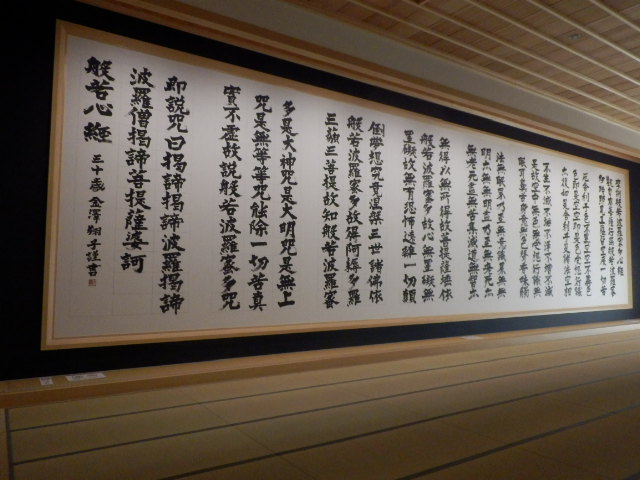 摩訶般若波羅蜜多心經
觀自在菩薩行深般若波羅蜜
多時照見五蘊皆空度一切苦
厄舎利子色不異空空不異色
色即是空空即是色受想行識
亦復如是舎利子是諸法空相
不生不滅不垢不浄不増不減
是故空中無色無受想行識無
眼耳鼻舌身意無色聲香味觸
法無眼界乃至無意識界無無
明亦無無明盡乃至無老死亦
無老死盡無苦集滅道無智亦
無得以無所得故菩提薩埵依
般若波羅蜜多故心無罣礙無
罣礙故無有恐怖遠離一切顛
倒夢想究竟涅槃三世諸佛依
般若波羅蜜多故得阿耨多羅
三藐三菩提故知般若波羅蜜
多是大神呪是大明呪是無上
呪是無等等呪能除一切苦真
實不虚故説般若波羅蜜多呪
即説呪曰揭諦揭諦波羅揭諦
波羅僧揭諦菩提薩婆訶
般若心經 三十歳 金澤翔子謹書